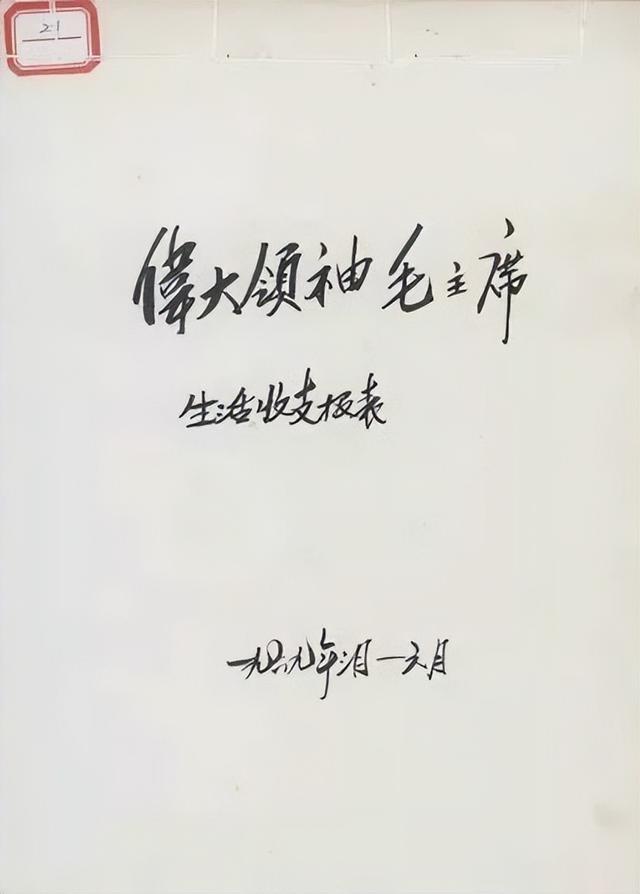 21
偉大領袖毛主席
生活收支报表
一九六九年 月—六月